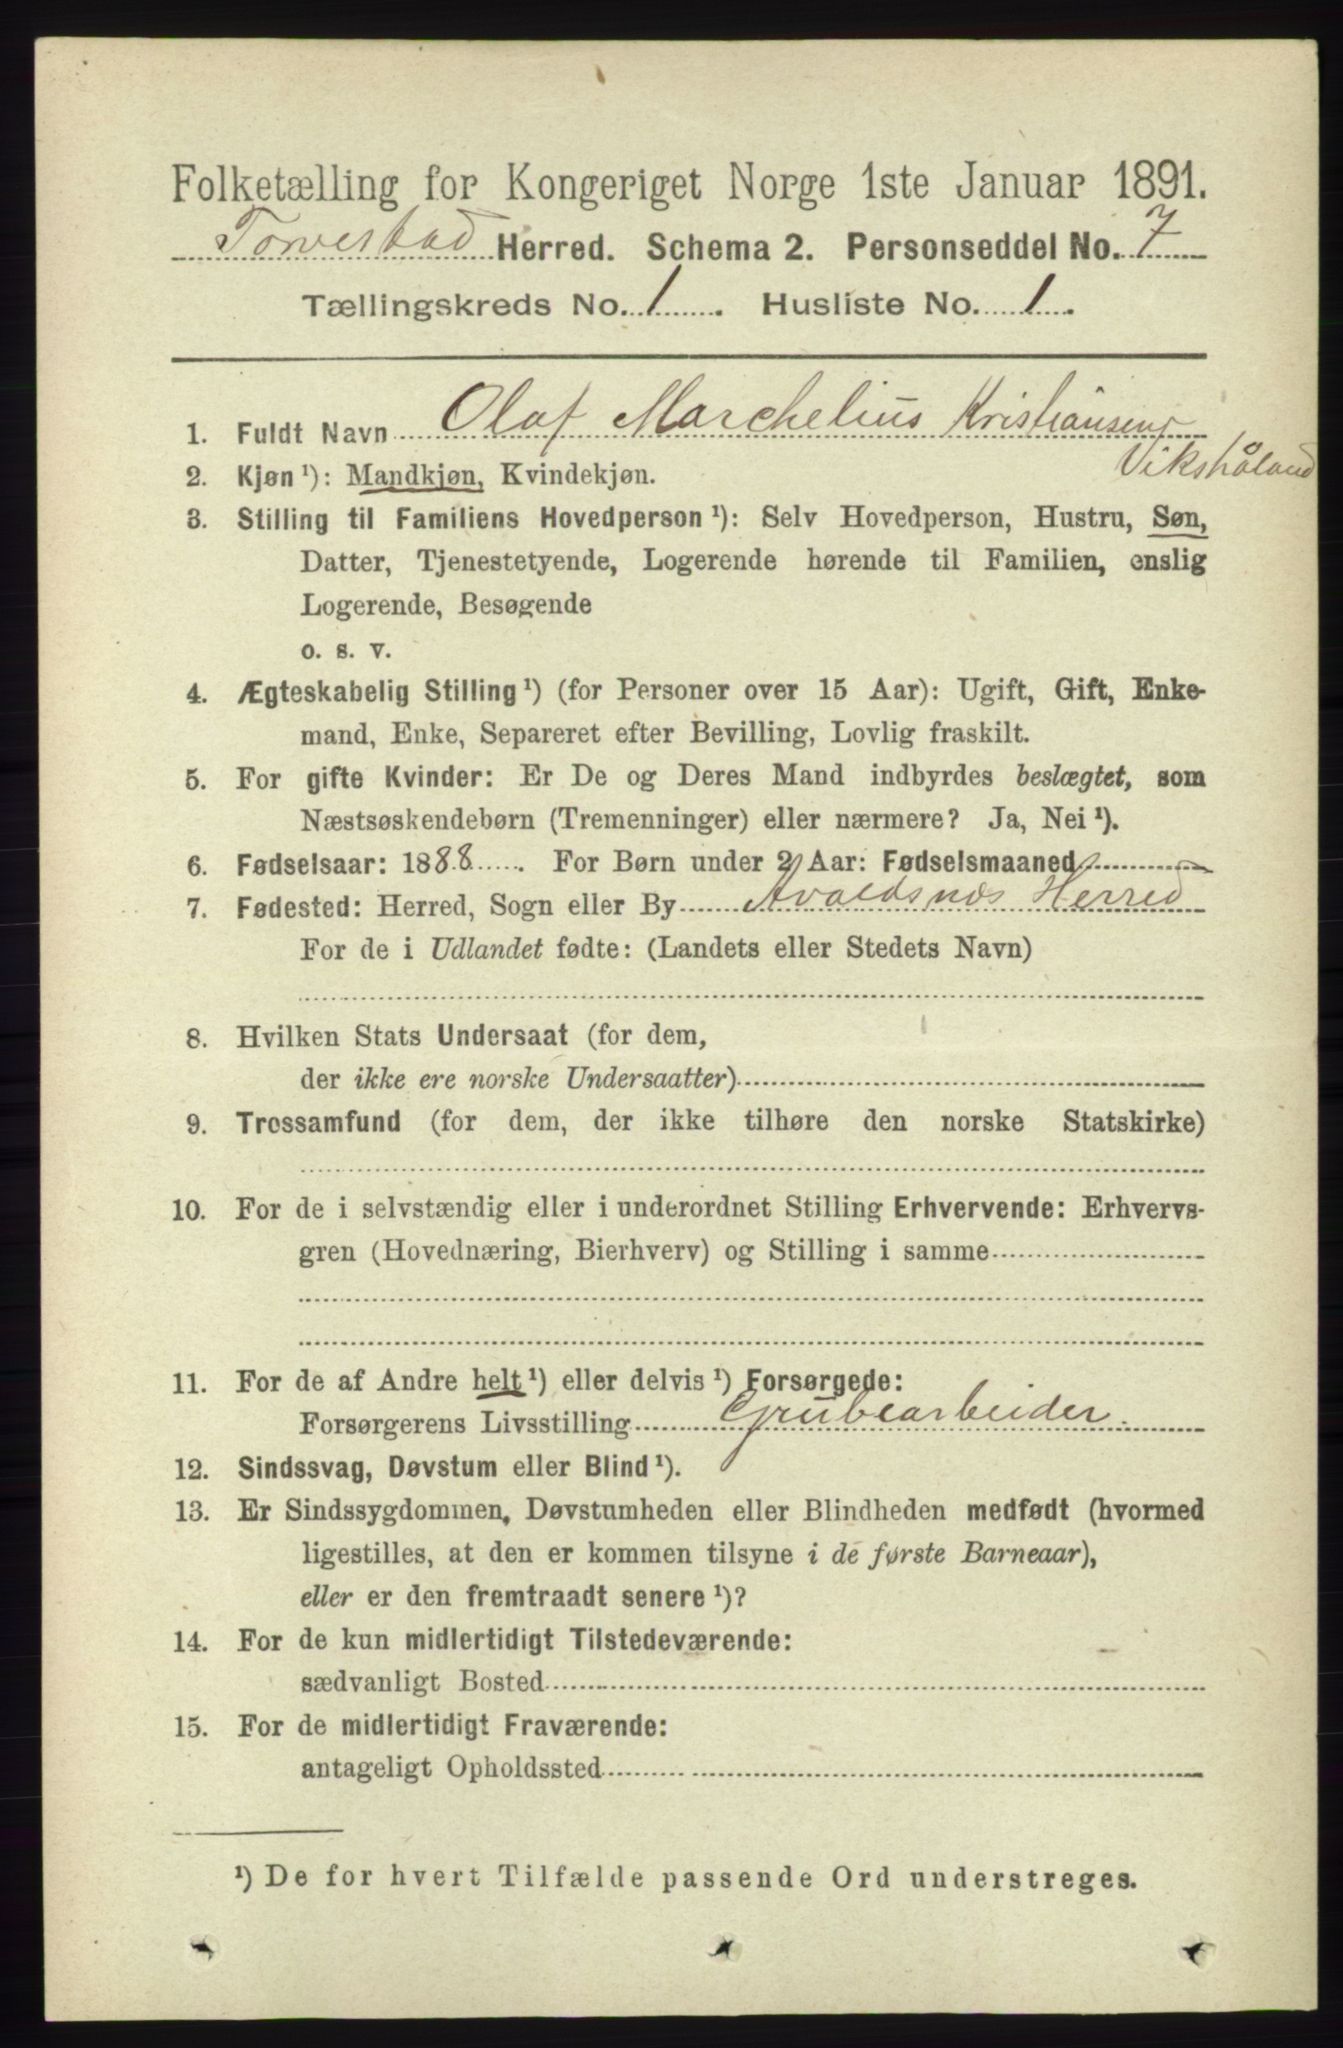 Folketælling for Kongeriget Norge 1ste Januar 1891.
Torvestad Herred. Schema 2. Personseddel No. 7
Tællingskreds No. 1. Husliste No. 1.
1. Fuldt Navn Olaf Marchelius Kristiansen
Vikshåland
2. Kjøn ¹): Mandkjøn, Kvindekjøn.
3. Stilling til Familiens Hovedperson ¹): Selv Hovedperson, Hustru, Søn,
Datter, Tjenestetyende, Logerende hørende til Familien, enslig
Logerende, Besøgende
o. s. v.
4. Ægteskabelig Stilling ¹) (for Personer over 15 Aar): Ugift, Gift, Enke-
mand, Enke, Separeret efter Bevilling, Lovlig fraskilt.
5. For gifte Kvinder: Er De og Deres Mand indbyrdes beslægtet, som
Næstsøskendebørn (Tremenninger) eller nærmere? Ja, Nei ¹).
6. Fødselsaar: 1888. For Børn under 2 Aar: Fødselsmaaned
7. Fødested: Herred, Sogn eller By Avaldsnæs Herred
For de i Udlandet fødte: (Landets eller Stedets Navn)
8. Hvilken Stats Undersaat (for dem,
der ikke ere norske Undersaatter)
9. Trossamfund (for dem, der ikke tilhøre den norske Statskirke)
10. For de i selvstændig eller i underordnet Stilling Erhvervende: Erhvervs-
gren (Hovednæring, Bierhverv) og Stilling i samme
11. For de af Andre helt ¹) eller delvis ¹) Forsørgede:
Forsørgerens Livsstilling Grubearbeider.
12. Sindssvag, Døvstum eller Blind ¹).
13. Er Sindssygdommen, Døvstumheden eller Blindheden medfødt (hvormed
ligestilles, at den er kommen tilsyne i de første Barneaar),
eller er den fremtraadt senere ¹)?
14. For de kun midlertidigt Tilstedeværende:
sædvanligt Bosted
15. For de midlertidigt Fraværende:
antageligt Opholdssted
¹) De for hvert Tilfælde passende Ord understreges.